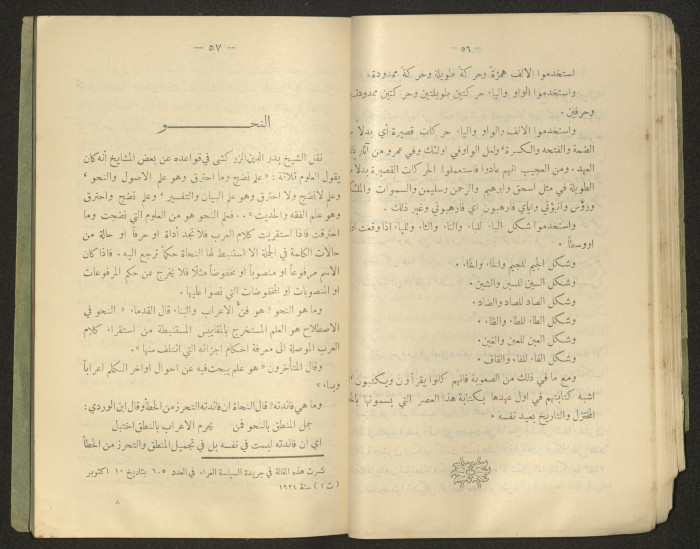 — ٥٦ —
استخدموا الالف همزةً وحركةً طويلة وحركةً ممدودة.
واستخدموا الواو والياء حركتين طويلتين وحركتين ممدودتين
وحرفين.
واستخدموا الالف والواو والياء حركات قصيرة أي بدلاً من
الضمة والفتحه والكسرة ولعل الواو في اولئك وفي عمرو من آثار
العهد. ومن العجيب انهم عادوا فاستعملوا الحركات القصيرة بدلاً
الطويلة في مثل اسحق وابرهيم والرحمن وسليمن والسموات
ورؤس وانبؤني واياي فارهبون اي فارهبوني وغير ذلك.
واستخدموا شكل الباء للباء والتاء والثاء والياء اذا وقعت
او وسطاً.
وشكل الجيم للجيم والحاء والخاء.
وشكل السين للسين والشين.
وشكل الصاد للصاد والضاد.
وشكل الطاء للطاء والظاء.
وشكل العين للعين والغين.
وشكل الفاء للفاء والقاف.
ومع ما في ذلك من الصعوبة فانهم كانوا يقرأون ويكتبون
اشبه كتابتهم في اول عهدها بكتابة هذا العصر التي يسمونها
المختزل والتاريخ يعيد نفسه.
— ٥٧ —
النحــــو
نقل الشيخ بدر الدين الزركشي في قواعده عن بعض المشايخ انه كان
يقول العلوم ثلاثة: «علم نضج وما احترق وهو علم الاصول والنحو،
وعلم لا نضج ولا احترق وهو علم البيان والتفسير، وعلم نضج واحترق
وهو علم الفقه والحديث».. فعلم النحو هو من العلوم التي نضجت وما
احترقت فاذا استقريت كلام العرب فلا تجد أداة او حرفاً او حالة من
حالات الكلمة في الجملة الا استنبط لها النحاة حكماً ترجع اليه. فاذا كان
الاسم مرفوعاً او منصوباً او مخفوضاً مثلاً فلا يخرج عن حكم المرفوعات
او المنصوبات او المخفوضات التي نصوا عليها.
وما هو النحو؟ هو فن الاعراب والبناء قال القدماء «النحو في
الاصطلاح هو العلم المستخرج بالمقاييس المستنبطة من استقراء كلام
العرب الموصلة الى معرفة احكام اجزائه التي ائتلف منها».
وقال المتأخرون «هو علم يبحث فيه عن احوال اواخر الكلم اعراباً
وبناء»
وما هي فائدته؟ قال النحاة ان فائدته التحرز من الخطأ وقال ابن الوردي:
جمل المنطق بالنحو فمن يحرم الاعراب بالنطق اختبل
اي ان فائدته ليست في نفسه بل في تجميل المنطق والتحرز من الخطأ
نشرت هذه المقالة في جريدة السياسة الغراء في العدد ٦٠٥ بتاريخ ١٠ اكتوبر
(ت ١) سنة ١٩٢٤
٨